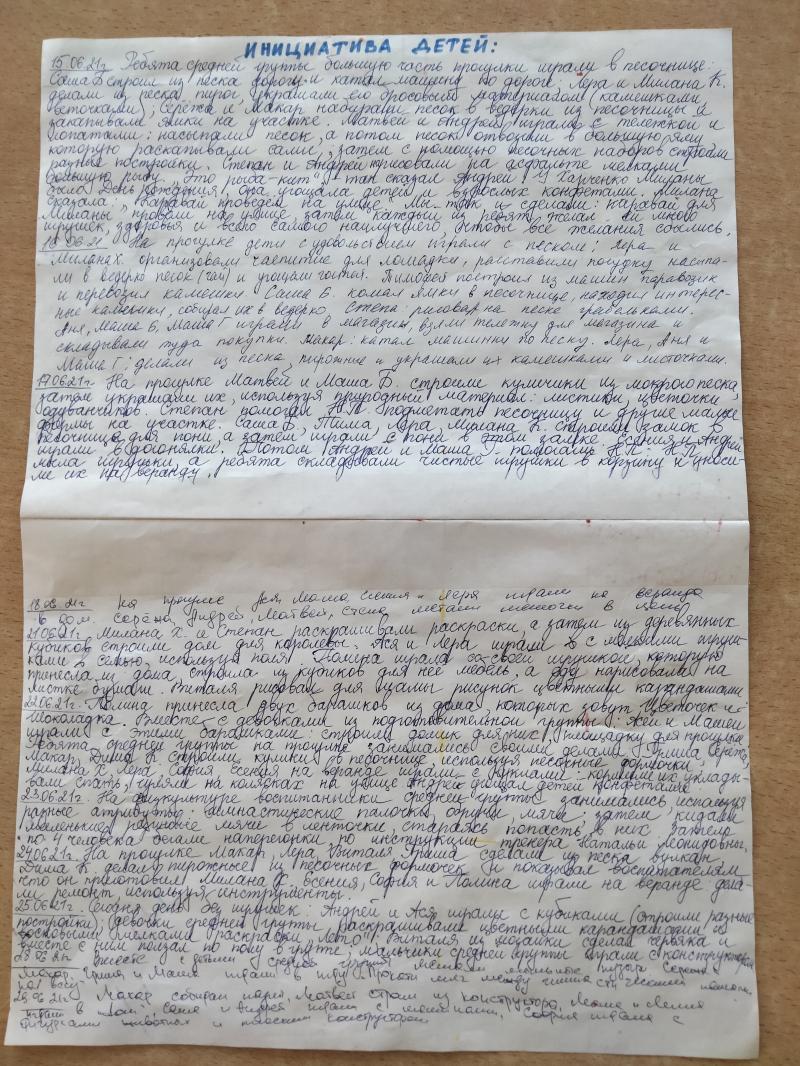 ИНИЦИАТИВА ДЕТЕЙ:
15.06.21г Ребята средней группы большую часть прогулки играли в песочнице:
Саша Б строил из песка дорогу и катал машину по дороге, Лера и Милана К.
делали из песка пирог, украшали его бросовым материалом (камешками
цветочками), Серёжа и Макар набирали песок в ведёрки из песочницы и
закапывали ямки на участке. Матвей и Андрей играли с тележкой и
лопатами: насыпали песок, а потом песок отвозили в большую яму
которую раскапывали сами, затем с помощью песочных наборов строили
разные постройки. Степан и Андрей рисовали на асфальте мелками
большую рыбу. "Это рыба-кит" - так сказал Андрей. У Миланы
был День рождения, она угощала детей и взрослых конфетами. Милана
сказала: "Каравай проведем на улице" Мы так и сделали: каравай для
Миланы провели на улице, затем каждый из ребят желал ей много
игрушек, здоровья и всего самого наилучшего, чтобы все желания сбылись.
16.06.21 На прогулке дети с удовольствием играли с песком: Лера и
Милана Х. организовали чаепитие для лошадки, расставили посудку насыпа-
ли в ведёрко песок (чай) и угощали гостей. Тимофей построил из машин паровозик
и перевозил камешки. Саша Б. копал ямки в песочнице, находил интерес-
ные камешки, собирал их в ведёрко. Степа рисовал на песке грабельками.
Аня, Маша Б, Маша Г играли в магазин, взяли тележку для магазина и
складывали туда покупки. Макар: катал машинки по песку. Лера, Аня и
Маша Г: делали из песка пирожные и украшали их камешками и листочками.
17.06.21г. На прогулке Матвей и Маша Б. строили куличики из мокрого песка,
затем украшали их, используя природный материал: листики, цветочки
одуванчиков. Степан помогал Н.П. подметать песочницу и другие малые
формы на участке. Саша Б, Тима, Лера, Милана К. строили замок в
песочнице для пони, а затем играли с пони в этом замке. Есения и Андрей
играли в догонялки. Потом Андрей и Маша помогали Н.П: Н.П.
мыла игрушки, а ребята складывали чистые игрушки в корзину и уноси-
ли их на веранду.
18.06.21г На прогулке Ася, Маша и Лера играли на веранде
в дом. Серёжа, Андрей, Матвей, Степа метали мешочки в цель
21.06.21г. Милана Х. и Степан раскрашивали раскраски, а затем из деревянных
кубиков строили дом для королевы. Ася и Лера играли с малыми игруш-
ками в семью, используя поля. Полина играла со своей игрушкой, которую
принесла из дома, строила из кубиков для нее мебель, а еду нарисовала на
листке бумаги. Виталя рисовал для мамы рисунок цветными карандашами
22.06.21г. Полина принесла двух барашков из дома, которых зовут Цветочек и
Шоколадка. Вместе с девочками из подготовительной группы: Асей и Машей
играли с этими барашками: строили домик для них, площадку для прогулки
Ребята средней группы на прогулке занимались своими делами: Гриша, Серёжа,
Макар, Дима К строили куличи в песочнице, используя песочные формочки,
Милана Х, Лера, София, Есения на веранде играли с куклами: кормили их, уклады-
вали спать, гуляли на колясках на улице. Андрей угощал детей конфетами
23.06.21г. На физкультуре воспитанники средней группы занимались, используя
разные атрибуты: гимнастические палочки, обручи, мячи; затем кидали
маленькие резиновые мячи в ленточки, стараясь попасть в них. Затем
по 4 человека бегали наперегонки, по инструкции тренера Натальи Леонидовны.
24.06.21г. На прогулке Макар, Лера, Виталя, Гриша сделали из песка вулкан,
Дима К. делал пирожные из песочных формочек и показывал воспитателям,
что он приготовил. Милана Х. Есения, София и Полина играли на веранде: дела-
ли ремонт, используя инструменты.
25.06.21г. Сегодня день без игрушек: Андрей и Ася играли с кубиками (строили разные
постройки), девочки средней группы раскрашивали цветными карандашами и
восковыми мелками раскраски "Лето". Виталя из мозаики сделал червяка и
вместе с ним ползал по полу в группе, мальчики средней группы играли с конструктором
28.06.21г Вместе с детьми средней группы
Макар, Гриша и Маша играли в игру
29.06.21г Макар собирал пазл, Матвей строил из конструктора, Маша и Милена
играли в дом, Саша и Андрей играли с машинками, София играла с
фигурками животных и плоским конструктором